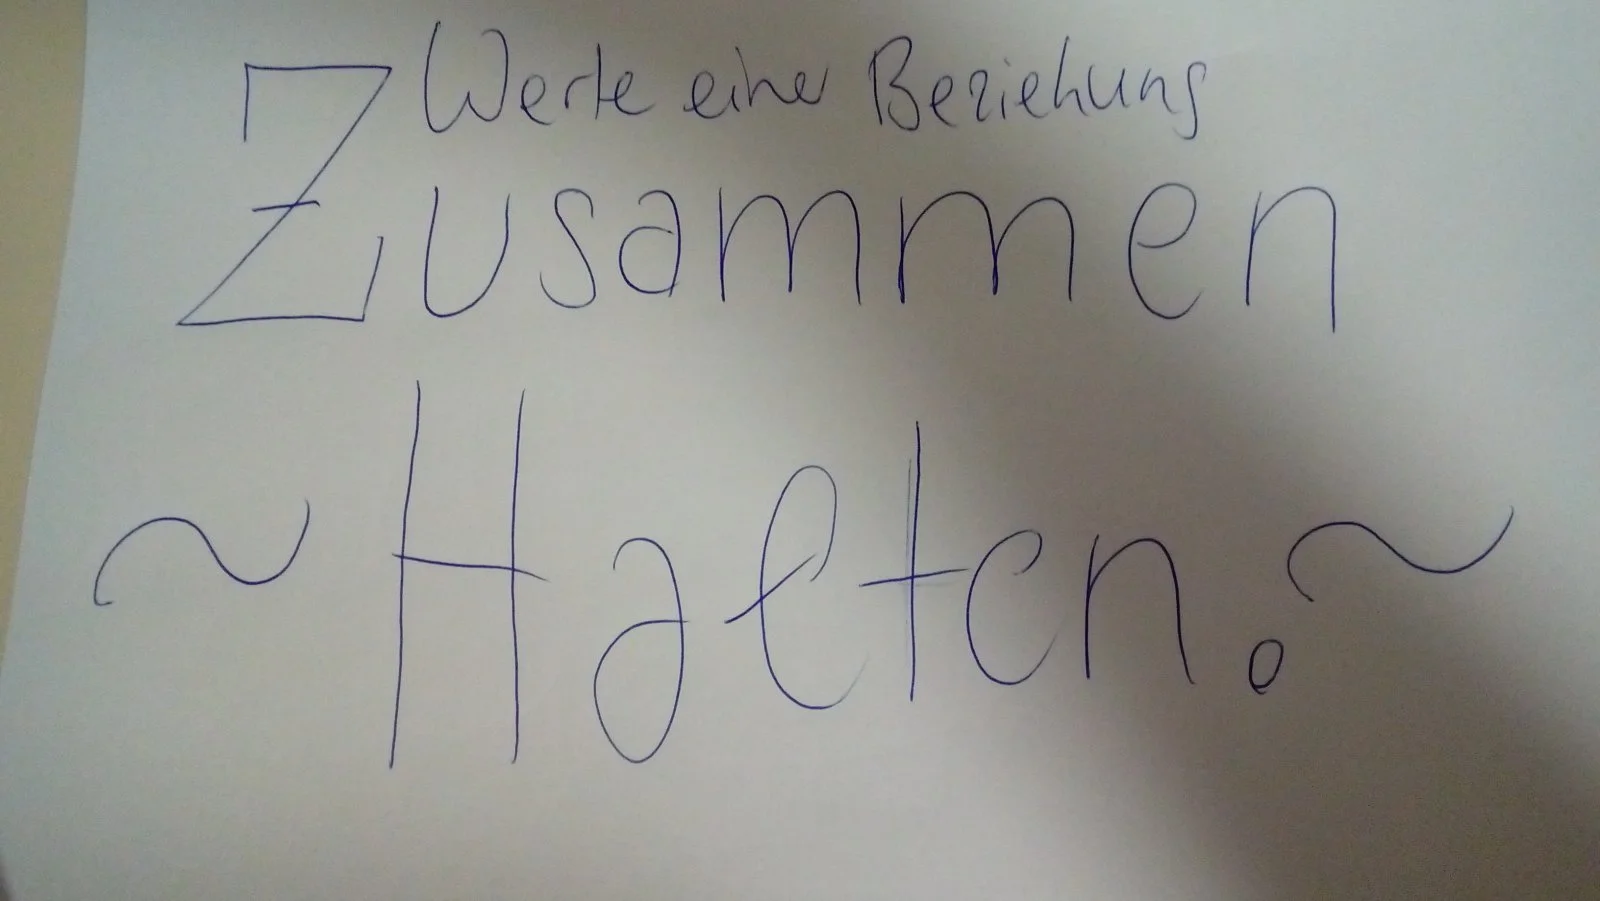 Werte einer Beziehung
Zusammen
~Halten.~